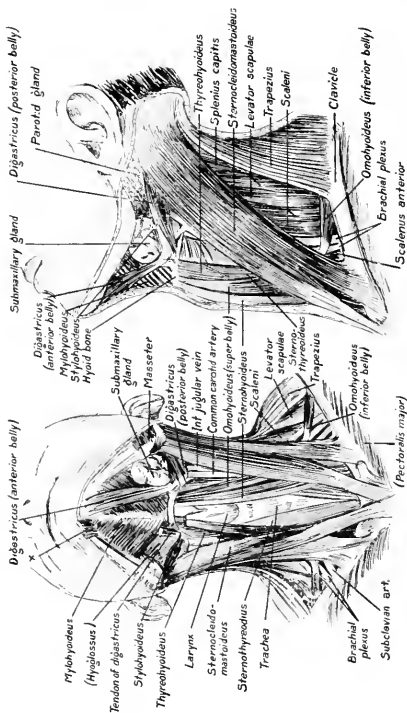 Digastricus (anterior belly)
x
Mylohyoideus
(Hyoglossus)
Tendon of digastricus
Stylohyoideus
Thyreohyoideus
Larynx
Sternocleido-
mastoideus
Sternothyreodius
Trachea
Brachial
plexus
Subclavian art.
Submaxillary
gland
Masseter
Digastricus
(posterior belly)
Int jugular vein
Common carotid artery
Omohyoideus (super. belly)
Sternohyoideus
Scaleni
Levator
scapulae
Sterno-
thyreoideus
Trapezius
Omohyoideus
(inferior belly)
(Pectoralis major)
Digastricus (posterior belly)
Parotid gland
Submaxillary gland
Digastricus
(anterior belly)
Mylohyoideus
Stylohyoideus
Hyoid bone
Thyreohyoideus
Splenius capitis
Sternocleidomastoideus
Levator scapulae
Trapezius
Scaleni
Clavicle
Omohyoideus (inferior belly)
Brachial plexus
Scalenus anterior